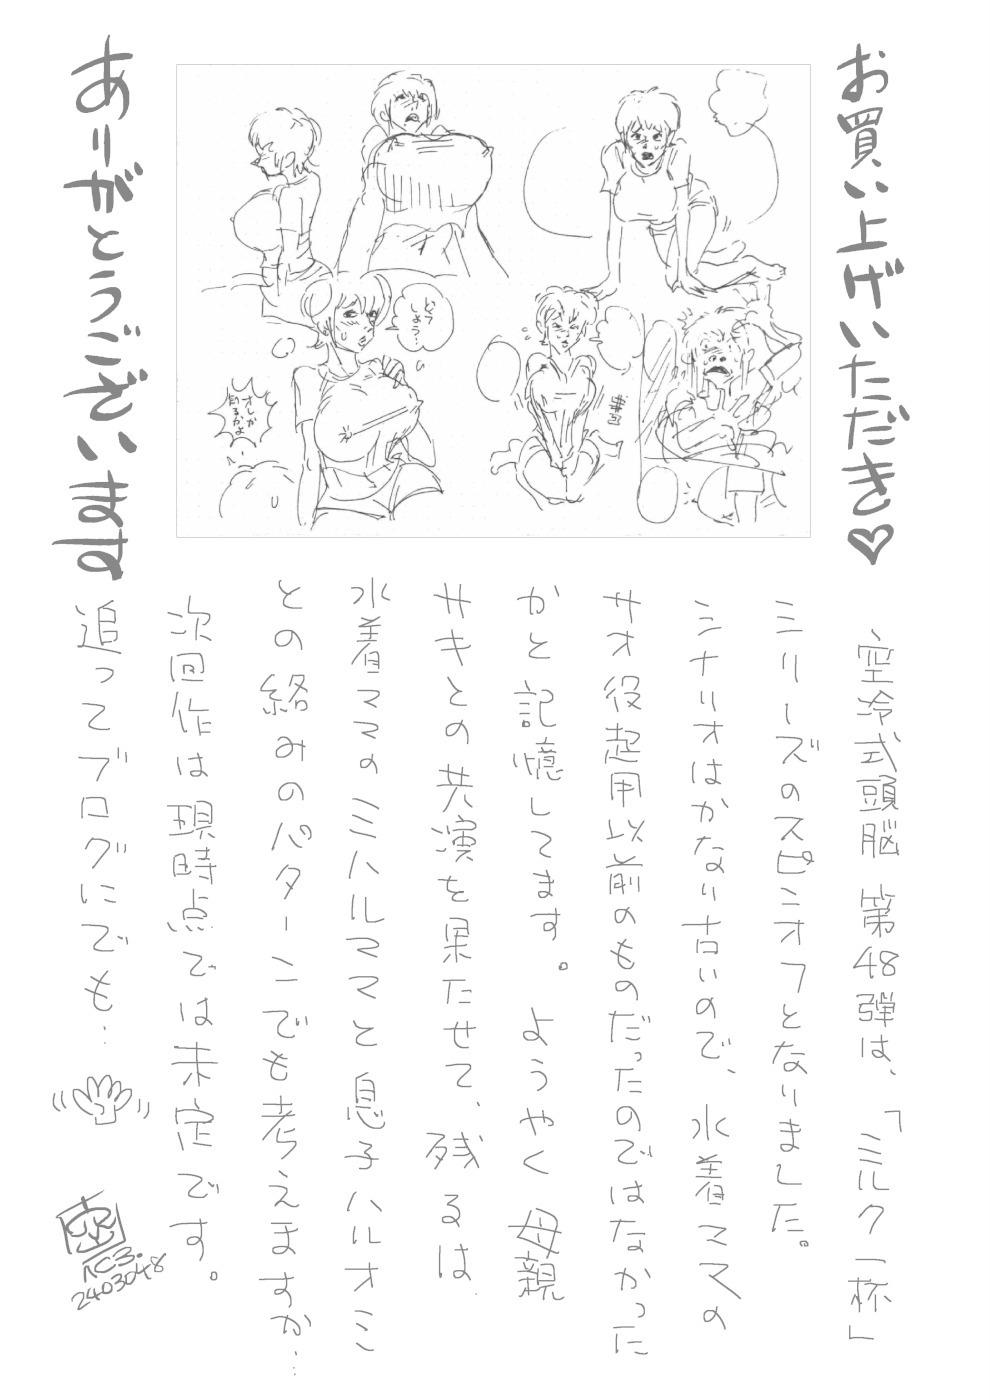 お買い上げいただき♡
ありがとうございます
どうしよう…
オレが
空冷式頭脳 第48弾は、「ミルク一杯」
シリーズのスピンオフとなりました。
シナリオはかなり古いので、水着ママの
サオ役起用以前のものだったのではなかった
かと記憶してます。ようやく母親
サキとの共演を果たせて、残るは
水着ママのミハルママと息子ハルオミ
との絡みのパターンでも考えますか…
次回作は現時点では未定です。
追ってブログにでも…
AC3.
2403048